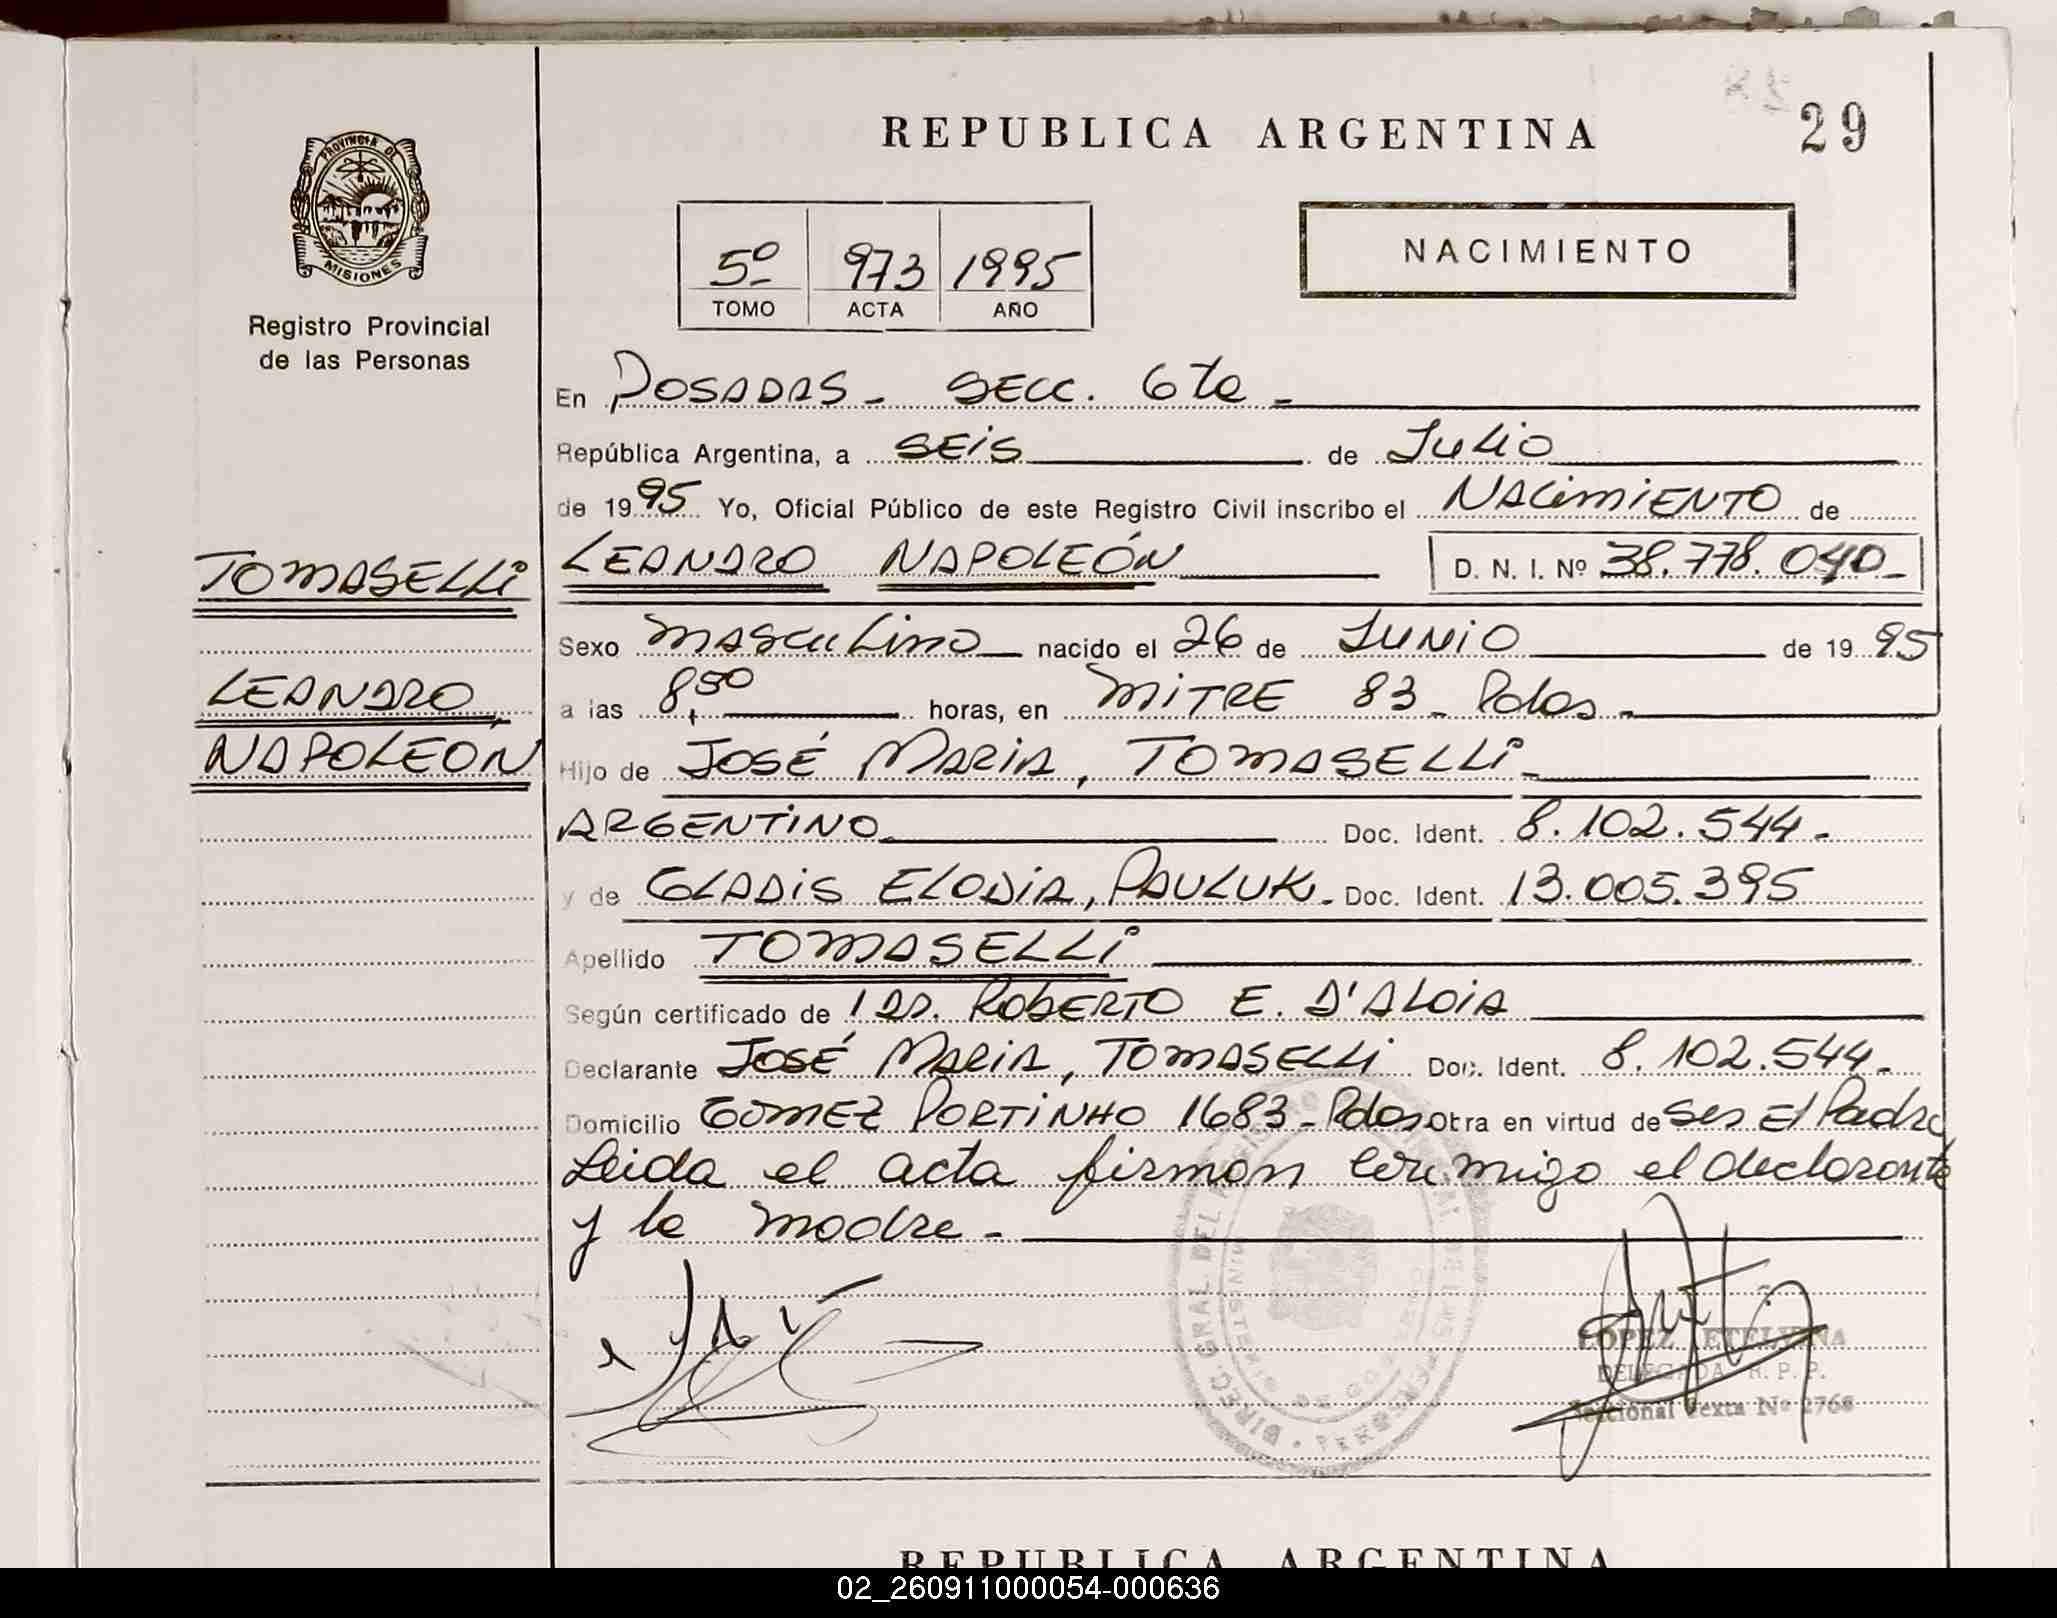 REPUBLICA ARGENTINA
29
PROVINCIA DE
MISIONES
Registro Provincial
de las Personas
5º 973 1995
TOMO ACTA AÑO
NACIMIENTO
En POSADAS - SECC. 6ta -
República Argentina, a SEIS de JULIO
de 1995 Yo, Oficial Público de este Registro Civil inscribo el NACIMIENTO de
TOMASELLI
LEANDRO NAPOLEÓN D. N. I. Nº 38.778.040-
Sexo MASCULINO nacido el 26 de JUNIO de 1995
LEANDRO
a las 8,50 horas, en MITRE 83 - Pdas -
NAPOLEÓN
Hijo de JOSÉ MARIA, TOMASELLI -
ARGENTINO Doc. Ident. 8.102.544-
y de GLADIS ELODIA, PAULUK - Doc. Ident. 13.005.395
Apellido TOMASELLI
Según certificado de / DR. ROBERTO E. D'ALOIA
Declarante JOSÉ MARIA, TOMASELLI Doc. Ident. 8.102.544-
Domicilio GOMEZ PORTINHO 1683 - Pdas Obra en virtud de Ser El Padre
Leida el acta firman conmigo el declarante
y la madre -
DIREC. GRAL. DEL REGISTRO
LOPEZ ETELVINA
DELEGADA R. P. P.
Seccional Sexta Nº 2766
REPUBLICA ARGENTINA
02_260911000054-000636